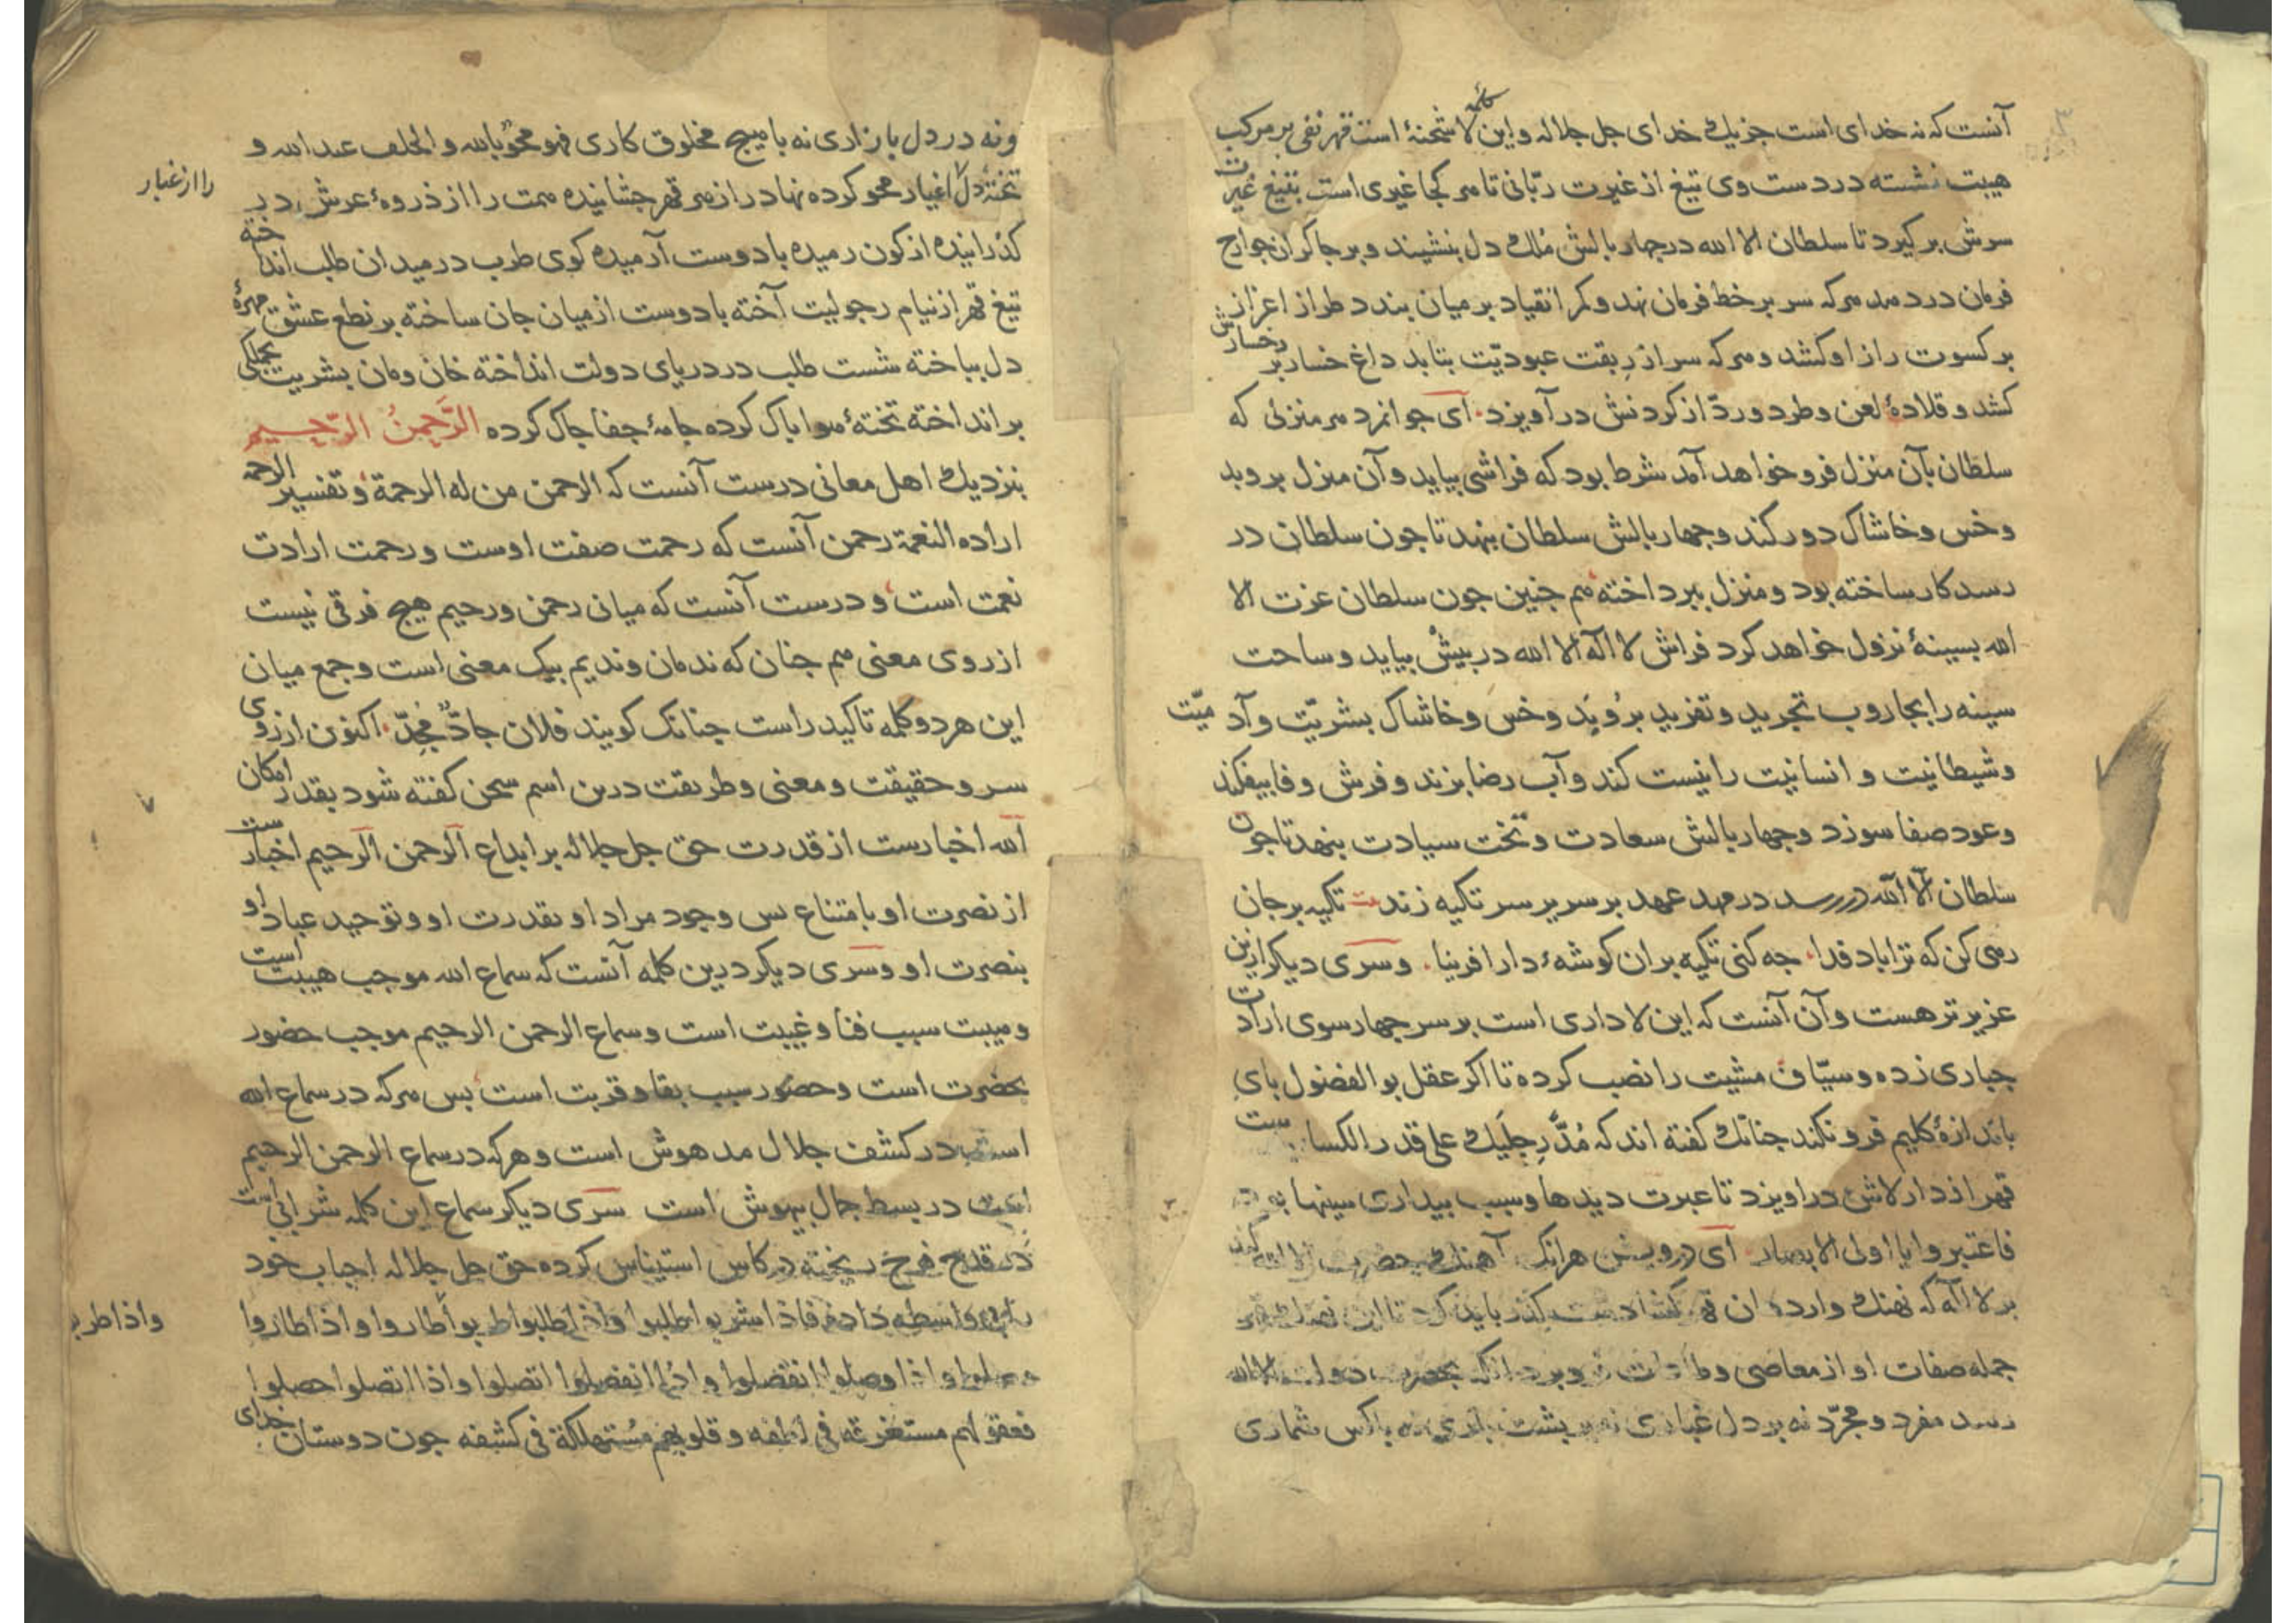 آنست که نه خدای است جز یک خدای جل جلاله و این کلمه لا شحنهٔ است قهر نفی بر مرکب
هیبت نشسته در دست وی تیغ از غیرت ربّانی تا هر کجا غیری است بتیغ غیرت
سرش بر کیرد تا سلطان الا الله در چهار بالش مُلک دل بنشیند و بر چاکران جوارح
فرمان در دهد هر که سر بر خط فرمان نهد و کمر انقیاد بر میان بندد طراز اعزاز
بر کسوت راز او کشد و هر که سر از رِبقت عبودیّت بتابد داغ خسار بر رخسارش
کشد و قلادهٔ لعن و طرد و ردّ از کردنش در آویزد ای جوانمرد هر منزلی که
سلطان بآن منزل فرو خواهد آمد شرط بود که فراشی بیاید و آن منزل بروبد
و خس و خاشاک دور کند و چهار بالش سلطان بنهد تا جون سلطان در
رسد کار ساخته بود و منزل ببرداخته هم جنین جون سلطان عزت الا
الله بسینهٔ نزول خواهد کرد فراش لا اله الا الله در بیش بیاید و ساحت
سینه را بجاروب تجرید و تفرید برُوبَد و خس و خاشاک بشریّت و آدمیّت
و شیطانیت و انسانیت را نیست کند و آب رضا بزند و فرش وفا بیفکند
و عود صفا سوزد و جهار بالش سعادت و تخت سیادت بنهد تا جون
سلطان الا الله در رسد در مهد عهد بر سریر سر تکیه زند تکیه بر جان
رهی کن که ترا باد فدا جه کنی تکیه بران کوشهٔ دار افرینا وسری دیکر ازین
عزیز تر هست و آن آنست که این لا داری است بر سر جهار سوی ارادت
جباری زده و سیّاف مشیت را نصب کرده تا اکر عقل بو الفضول بای
باندازهٔ کلیم فرو نکند جنانک کفته اند که مُدَّ رِجلَیک علی قدر الکسا
قهر از دار لاش در اویزد تا عبرت دیدها و سبب بیداری سینها
فاعتبروا یا اولی الابصار ای درویش هرانک آهنک حضرت الا الله کند
بر لا اله که نهنک وارد
جمله صفات او از معاصی و بحضرت دولت الا الله
رسد مفرد و مجرّد نه بر دل غباری نه بر بشت باری نه با کس شماری
ونه در دل بازاری نه با هیج مخلوق کاری فهو محوٌ بالله و الخلف عند الله و
تختهٔ دل را از غبار اغیار محو کرده نهاد را زهر قهر جشانیده همت را از ذروهٔ عرش در
کذرانیده از کون رمیده با دوست آرمیده کوی طرب در میدان طلب انداخته
تیغ قهر از نیام رجولیت آخته با دوست از میان جان ساخته بر نطع عشق مهرهٔ
دل بباخته شست طلب در دریای دولت انداخته خان و مان بشریت بجملکی
بر انداخته تختهٔ هوا باک کرده جامهٔ جفا جاک کرده الرَّحمنُ الرّحیم
بنزدیک اهل معانی درست آنست که الرحمن من له الرحمة و تفسیر الرحمه
اراده النعمة رحمن آنست که رحمت صفت اوست و رحمت ارادت
نعمت است و درست آنست که میان رحمن و رحیم هیج فرقی نیست
از روی معنی هم جنان که ندمان و ندیم بیک معنی است و جمع میان
این هر دو کلمه تاکید راست جنانک کویند فلان جادٌّ مُجِدّ اکنون از روی
سر و حقیقت و معنی و طریقت درین اسم سخن کفته شود بقدر امکان
الله اخبارست از قدرت حق جل جلاله بر ابداع الرحمن الرحیم اخبارست
از نصرت او بامتناع بس وجود مراد او بقدرت او و توحید عباد او
بنصرت او وسری دیکر درین کلمه آنست که سماع الله موجب هیبت است
و هیبت سبب فنا و غیبت است و سماع الرحمن الرحیم موجب حضور
بحضرت است و حضور سبب بقا و قربت است بس هر که در سماع الله
است در کشف جلال مدهوش است و هر که در سماع الرحمن الرحیم
است در بسط جمال بیهوش است سری دیکر سماع این کلمه شرابی است
در قدح فرح ریخته در کاس استیناس کرده حق جل جلاله احباب خود
را بی واسطه داده فاذا شربوا طلبوا واذا طلبوا طربوا واذا طربوا طاروا واذا طاروا
وصلوا واذا وصلوا انفصلوا واذا انفصلوا اتصلوا واذا اتصلوا حصلوا
فعقولهم مستغرقة فی لطفه و قلوبهم مُستهلکة فی کشفه جون دوستان خدای